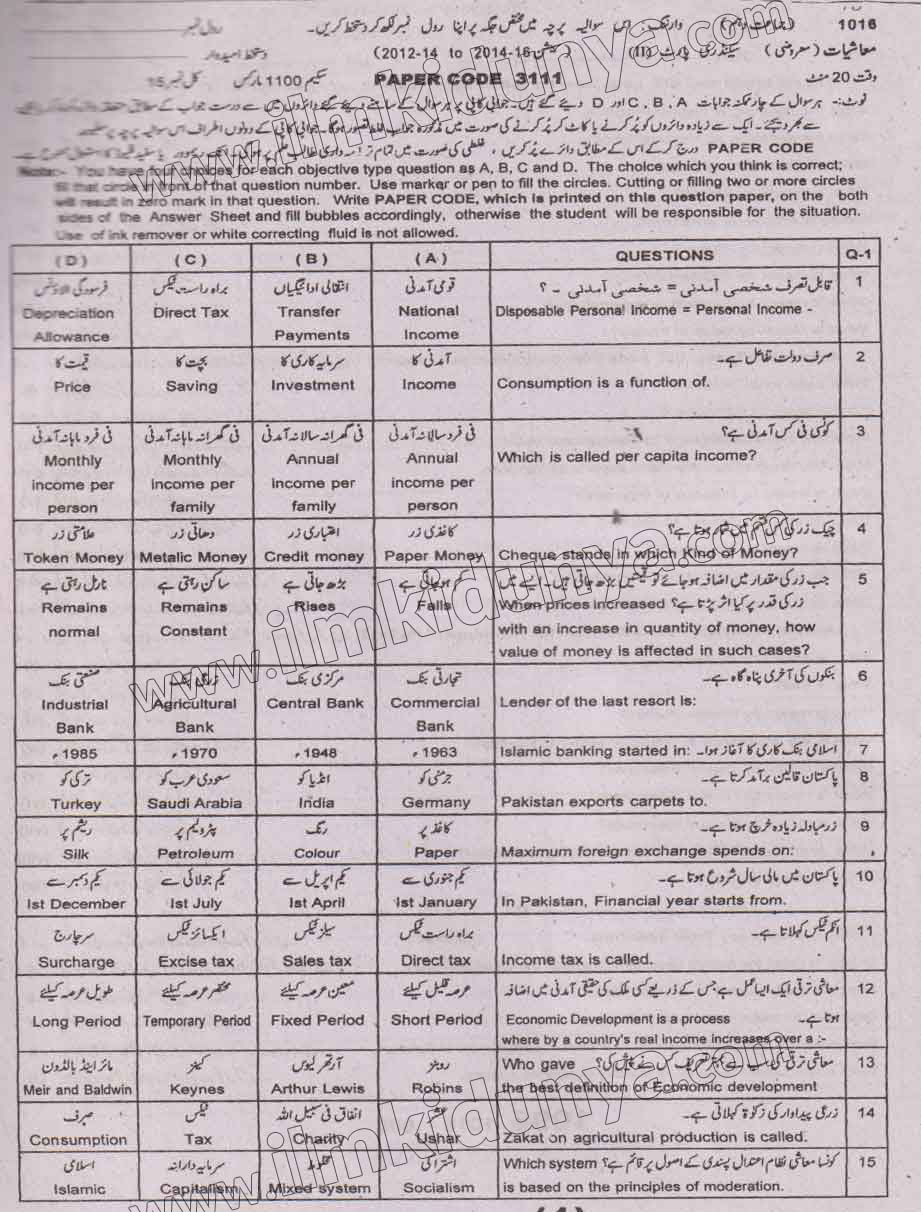 رول نمبر ـــــــ وارننگ:۔ اس سوالیہ پرچہ میں مختص جگہ پر اپنا رول نمبر لکھ کر دستخط کریں۔ (جماعت دہم) 1016
معاشیات (معروضی) سیکنڈری پارٹ (II) (سیشن 16-2014 to 2012-14) دستخط امیدوار
وقت 20 منٹ PAPER CODE 3111 سکیم 1100 مارکس کل نمبر 15
نوٹ:۔ ہر سوال کے چار ممکنہ جوابات A، B، C اور D دیئے گئے ہیں۔ جوابی کاپی پر ہر سوال کے سامنے دیئے گئے دائروں میں سے درست جواب کے مطابق متعلقہ دائرہ
سے بھر دیجئے۔ ایک سے زیادہ دائروں کو پُر کرنے یا کاٹ کر پُر کرنے کی صورت میں مذکورہ جواب غلط تصور ہوگا۔ جوابی کاپی کے دونوں اطراف اس سوالیہ پرچہ پر مطبوعہ
PAPER CODE درج کر کے اس کے مطابق دائرے پُر کریں، غلطی کی صورت میں تمام تر ذمہ داری طالب علم پر ہوگی۔
Note:- You have four choices for each objective type question as A, B, C and D. The choice which you think is correct;
fill that circle in front of that question number. Use marker or pen to fill the circles. Cutting or filling two or more circles
will result in zero mark in that question. Write PAPER CODE, which is printed on this question paper, on the both
sides of the Answer Sheet and fill bubbles accordingly, otherwise the student will be responsible for the situation.
Use of ink remover or white correcting fluid is not allowed.
(D) (C) (B) (A) QUESTIONS Q-1
فرسودگی الاؤنس براہ راست ٹیکس انتقالی ادائیگیاں قومی آمدنی قابل تصرف شخصی آمدنی = شخصی آمدنی - ؟ 1
Depreciation Direct Tax Transfer National Disposable Personal Income = Personal Income -
Allowance Payments Income
قیمت کا بچت کا سرمایہ کاری کا آمدنی کا صرف دولت تفاعل ہے۔ 2
Price Saving Investment Income Consumption is a function of.
فی فرد ماہانہ آمدنی فی گھرانہ ماہانہ آمدنی فی گھرانہ سالانہ آمدنی فی فرد سالانہ آمدنی کونسی فی کس آمدنی ہے؟ 3
Monthly Monthly Annual Annual Which is called per capita income?
income per income per income per income per
person family family person
علامتی زر دھاتی زر اعتباری زر کاغذی زر چیک زر کی کس قسم میں شمار ہوتا ہے؟ 4
Token Money Metalic Money Credit money Paper Money Cheque stands in which Kind of Money?
نارمل رہتی ہے ساکن رہتی ہے بڑھ جاتی ہے کم ہو جاتی ہے جب زر کی مقدار میں اضافہ ہو جائے تو قیمتیں بڑھ جاتی ہیں۔ ایسے میں 5
Remains Remains Rises Falls When prices increased زر کی قدر پر کیا اثر پڑتا ہے؟
normal Constant with an increase in quantity of money, how
value of money is affected in such cases?
صنعتی بنک زرعی بنک مرکزی بنک تجارتی بنک بنکوں کی آخری پناہ گاہ ہے۔ 6
Industrial Agricultural Central Bank Commercial Lender of the last resort is:
Bank Bank Bank
1985ء 1970ء 1948ء 1963ء Islamic banking started in: اسلامی بنک کاری کا آغاز ہوا۔ 7
ترکی کو سعودی عرب کو انڈیا کو جرمنی کو پاکستان قالین برآمد کرتا ہے۔ 8
Turkey Saudi Arabia India Germany Pakistan exports carpets to.
ریشم پر پٹرولیم پر رنگ کاغذ پر زرمبادلہ زیادہ خرچ ہوتا ہے۔ 9
Silk Petroleum Colour Paper Maximum foreign exchange spends on:
یکم دسمبر سے یکم جولائی سے یکم اپریل سے یکم جنوری سے پاکستان میں مالی سال شروع ہوتا ہے۔ 10
Ist December Ist July Ist April Ist January In Pakistan, Financial year starts from.
سرچارج ایکسائز ٹیکس سیلز ٹیکس براہ راست ٹیکس انکم ٹیکس کہلاتا ہے۔ 11
Surcharge Excise tax Sales tax Direct tax Income tax is called.
طویل عرصہ کیلئے مختصر عرصہ کیلئے معین عرصہ کیلئے عرصہ قلیل کیلئے معاشی ترقی ایک ایسا عمل ہے جس کے ذریعے کسی ملک کی حقیقی آمدنی میں اضافہ 12
Long Period Temporary Period Fixed Period Short Period Economic Development is a process ہوتا ہے۔
where by a country's real income increases over a :-
مائر اینڈ بالڈون کینز آرتھر لیوس روبنز Who gave معاشی ترقی کی سب سے بہتر تعریف کس نے پیش کی؟ 13
Meir and Baldwin Keynes Arthur Lewis Robins the best definition of Economic development
صرف ٹیکس انفاق فی سبیل اللہ عشر زرعی پیداوار کی زکوٰۃ کہلاتی ہے۔ 14
Consumption Tax Charity Ushar Zakat on agricultural production is called.
اسلامی سرمایہ دارانہ مخلوط اشتراکی Which system کونسا معاشی نظام اعتدال پسندی کے اصول پر قائم ہے؟ 15
Islamic Capitalism Mixed system Socialism is based on the principles of moderation.
www.ilmkidunya.com
www.ilmkidunya.com
www.ilmkidunya.com